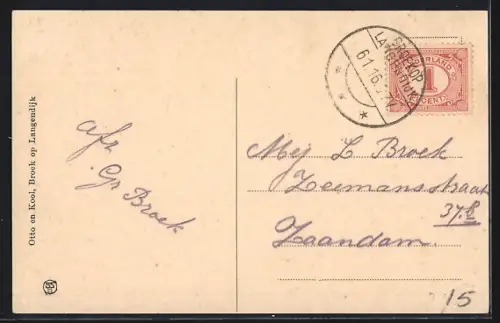 Otto en Kool, Broek op Langendijk
afz
Gr Broek
BROEK OP
LANGENDIJK
6.1.16
NEDERLAND
1
CENT
Mej L Broek
Zeemansstraat
37.
Zaandam.
15